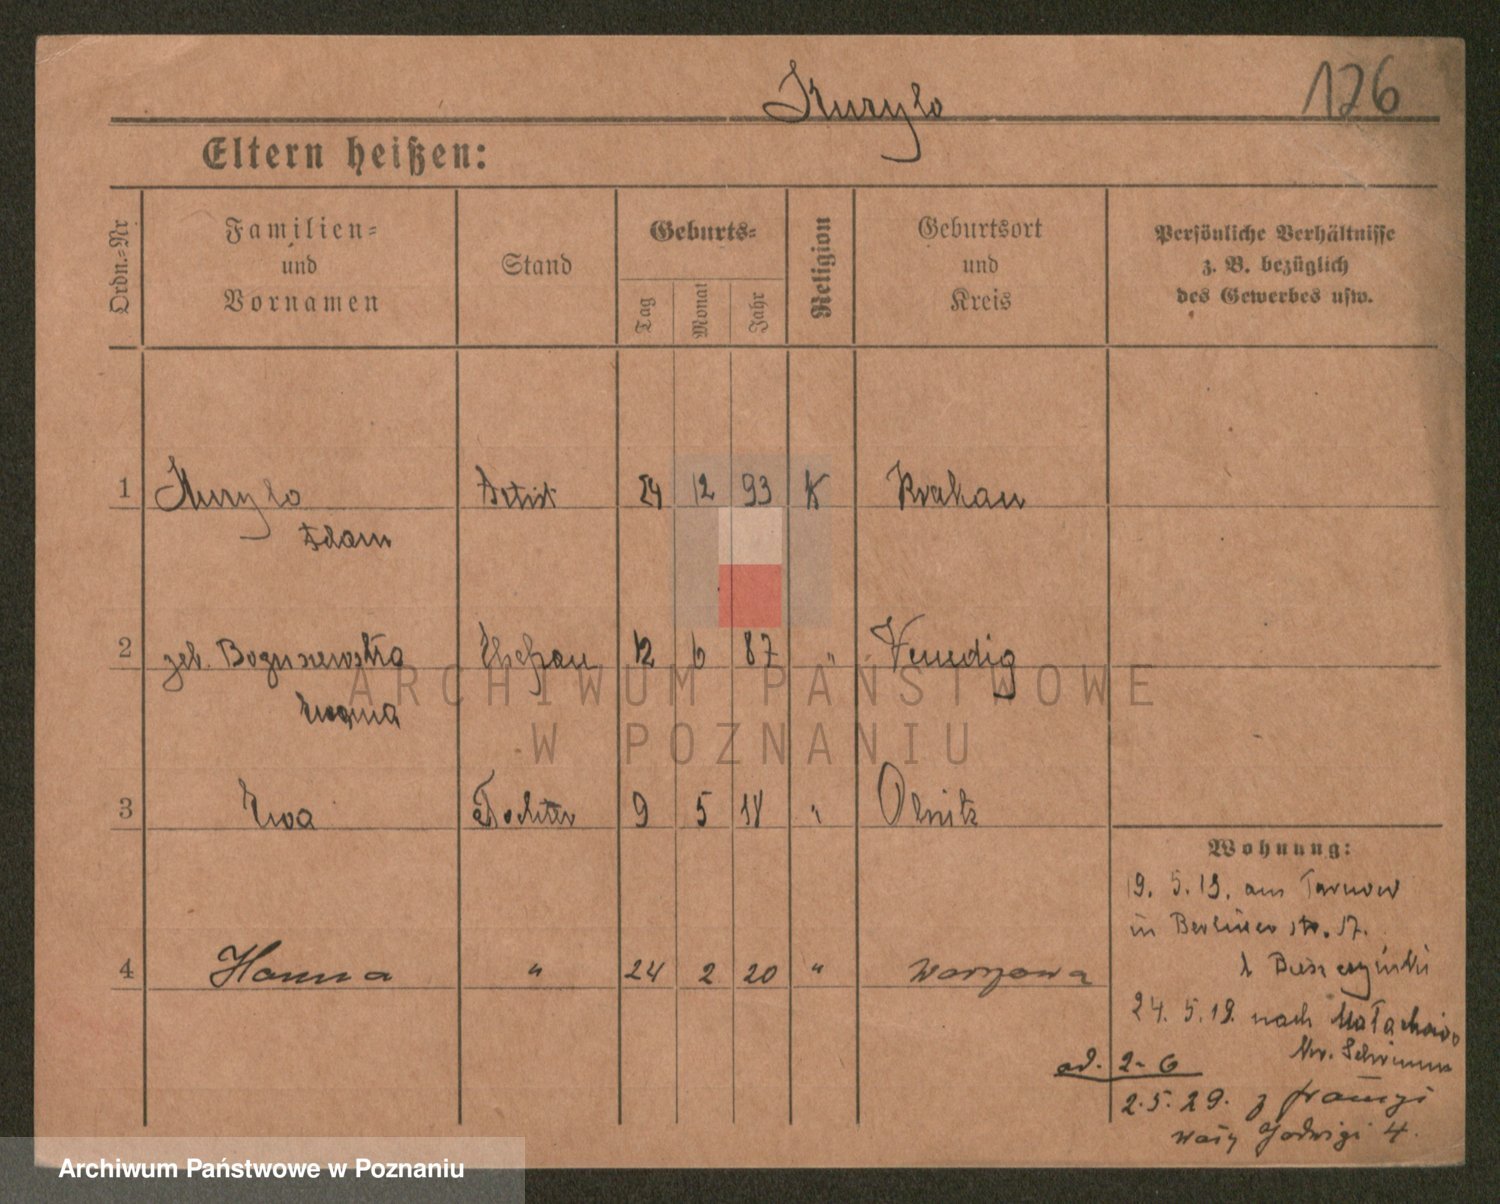 Kurylo 126
Eltern heißen:
Ordn.-Nr Familien- und Vornamen Stand Geburts- Tag Monat Jahr Religion Geburtsort und Kreis Persönliche Verhältnisse z. B. bezüglich des Gewerbes usw.
1 Kurylo Artist 24 12 93 K Krakau
Adam
2 geb. Boguszewska Ehefrau 12 6 87 " Venedig
3 Ewa Tochter 9 5 18 "
Wohnung:
19. 5. 19. aus Tarnow
in Berliner str. 17.
4 Hanna " 24 2 20 " Warszawa
24. 5. 19. nach
Kr. Schrimm
od. 2-6
2. 5. 29. z francji
wały Jadwigi 4.
ARCHIWUM PAŃSTWOWE
W POZNANIU
Archiwum Państwowe w Poznaniu